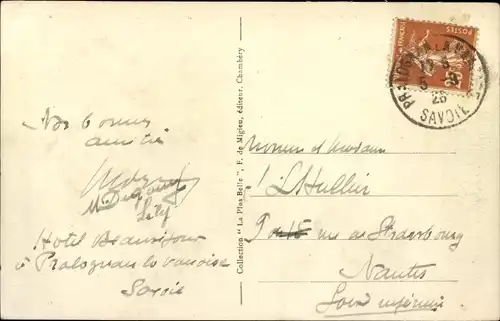 Nos bonnes
amitiés
Hotel Beauséjour
à Pralognan la Vanoise
Savoie
Collection "La Plus Belle", F. de Migieu, éditeur, Chambéry
POSTES
SAVOIE
Monsieur et Madame
L'Huillier
rue de Strasbourg
Nantes
Loire inférieure